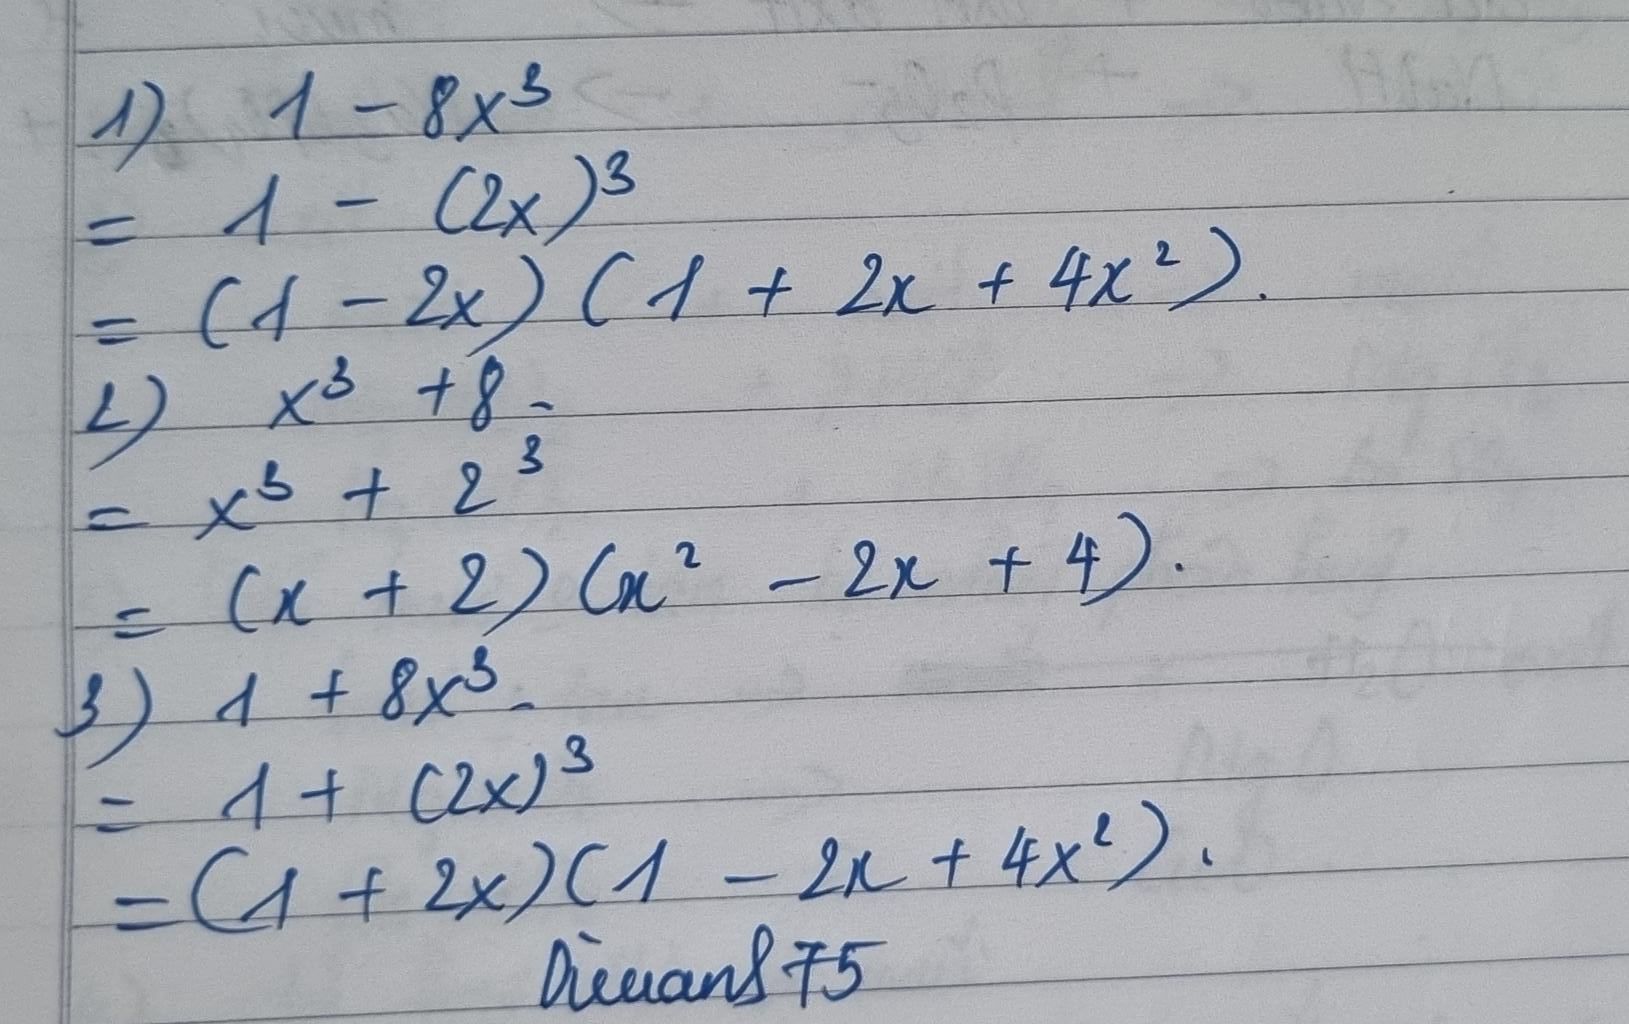 1) 1 - 8x³
= 1 - (2x)³
= (1 - 2x) (1 + 2x + 4x²).
2) x³ + 8.
= x³ + 2³
= (x + 2) (x² - 2x + 4).
3) 1 + 8x³.
= 1 + (2x)³
= (1 + 2x) (1 - 2x + 4x²).